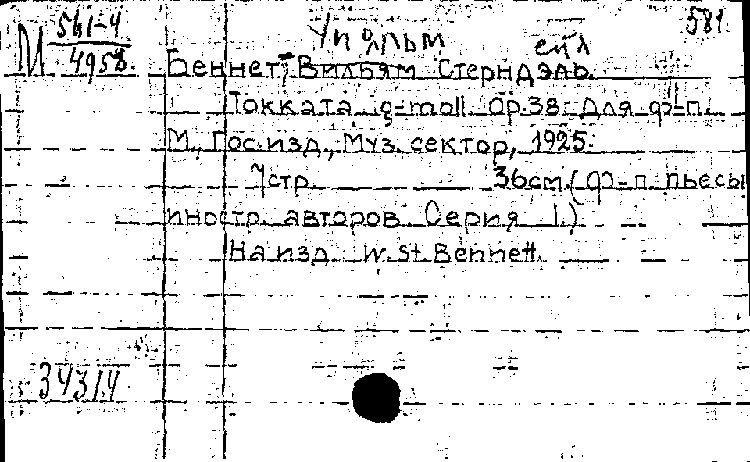 581
Уильям ейл
М 561-4
4958.
Беннет, Вильям Стерндэль.
Токката g-moll. Op.38. Для ф-п.
М., Гос. изд., Муз. сектор, 1925.
7стр. 36см. (Ф-п. пьесы
иностр. авторов. Серия I.)
На изд. W. St. Bennett.
34314